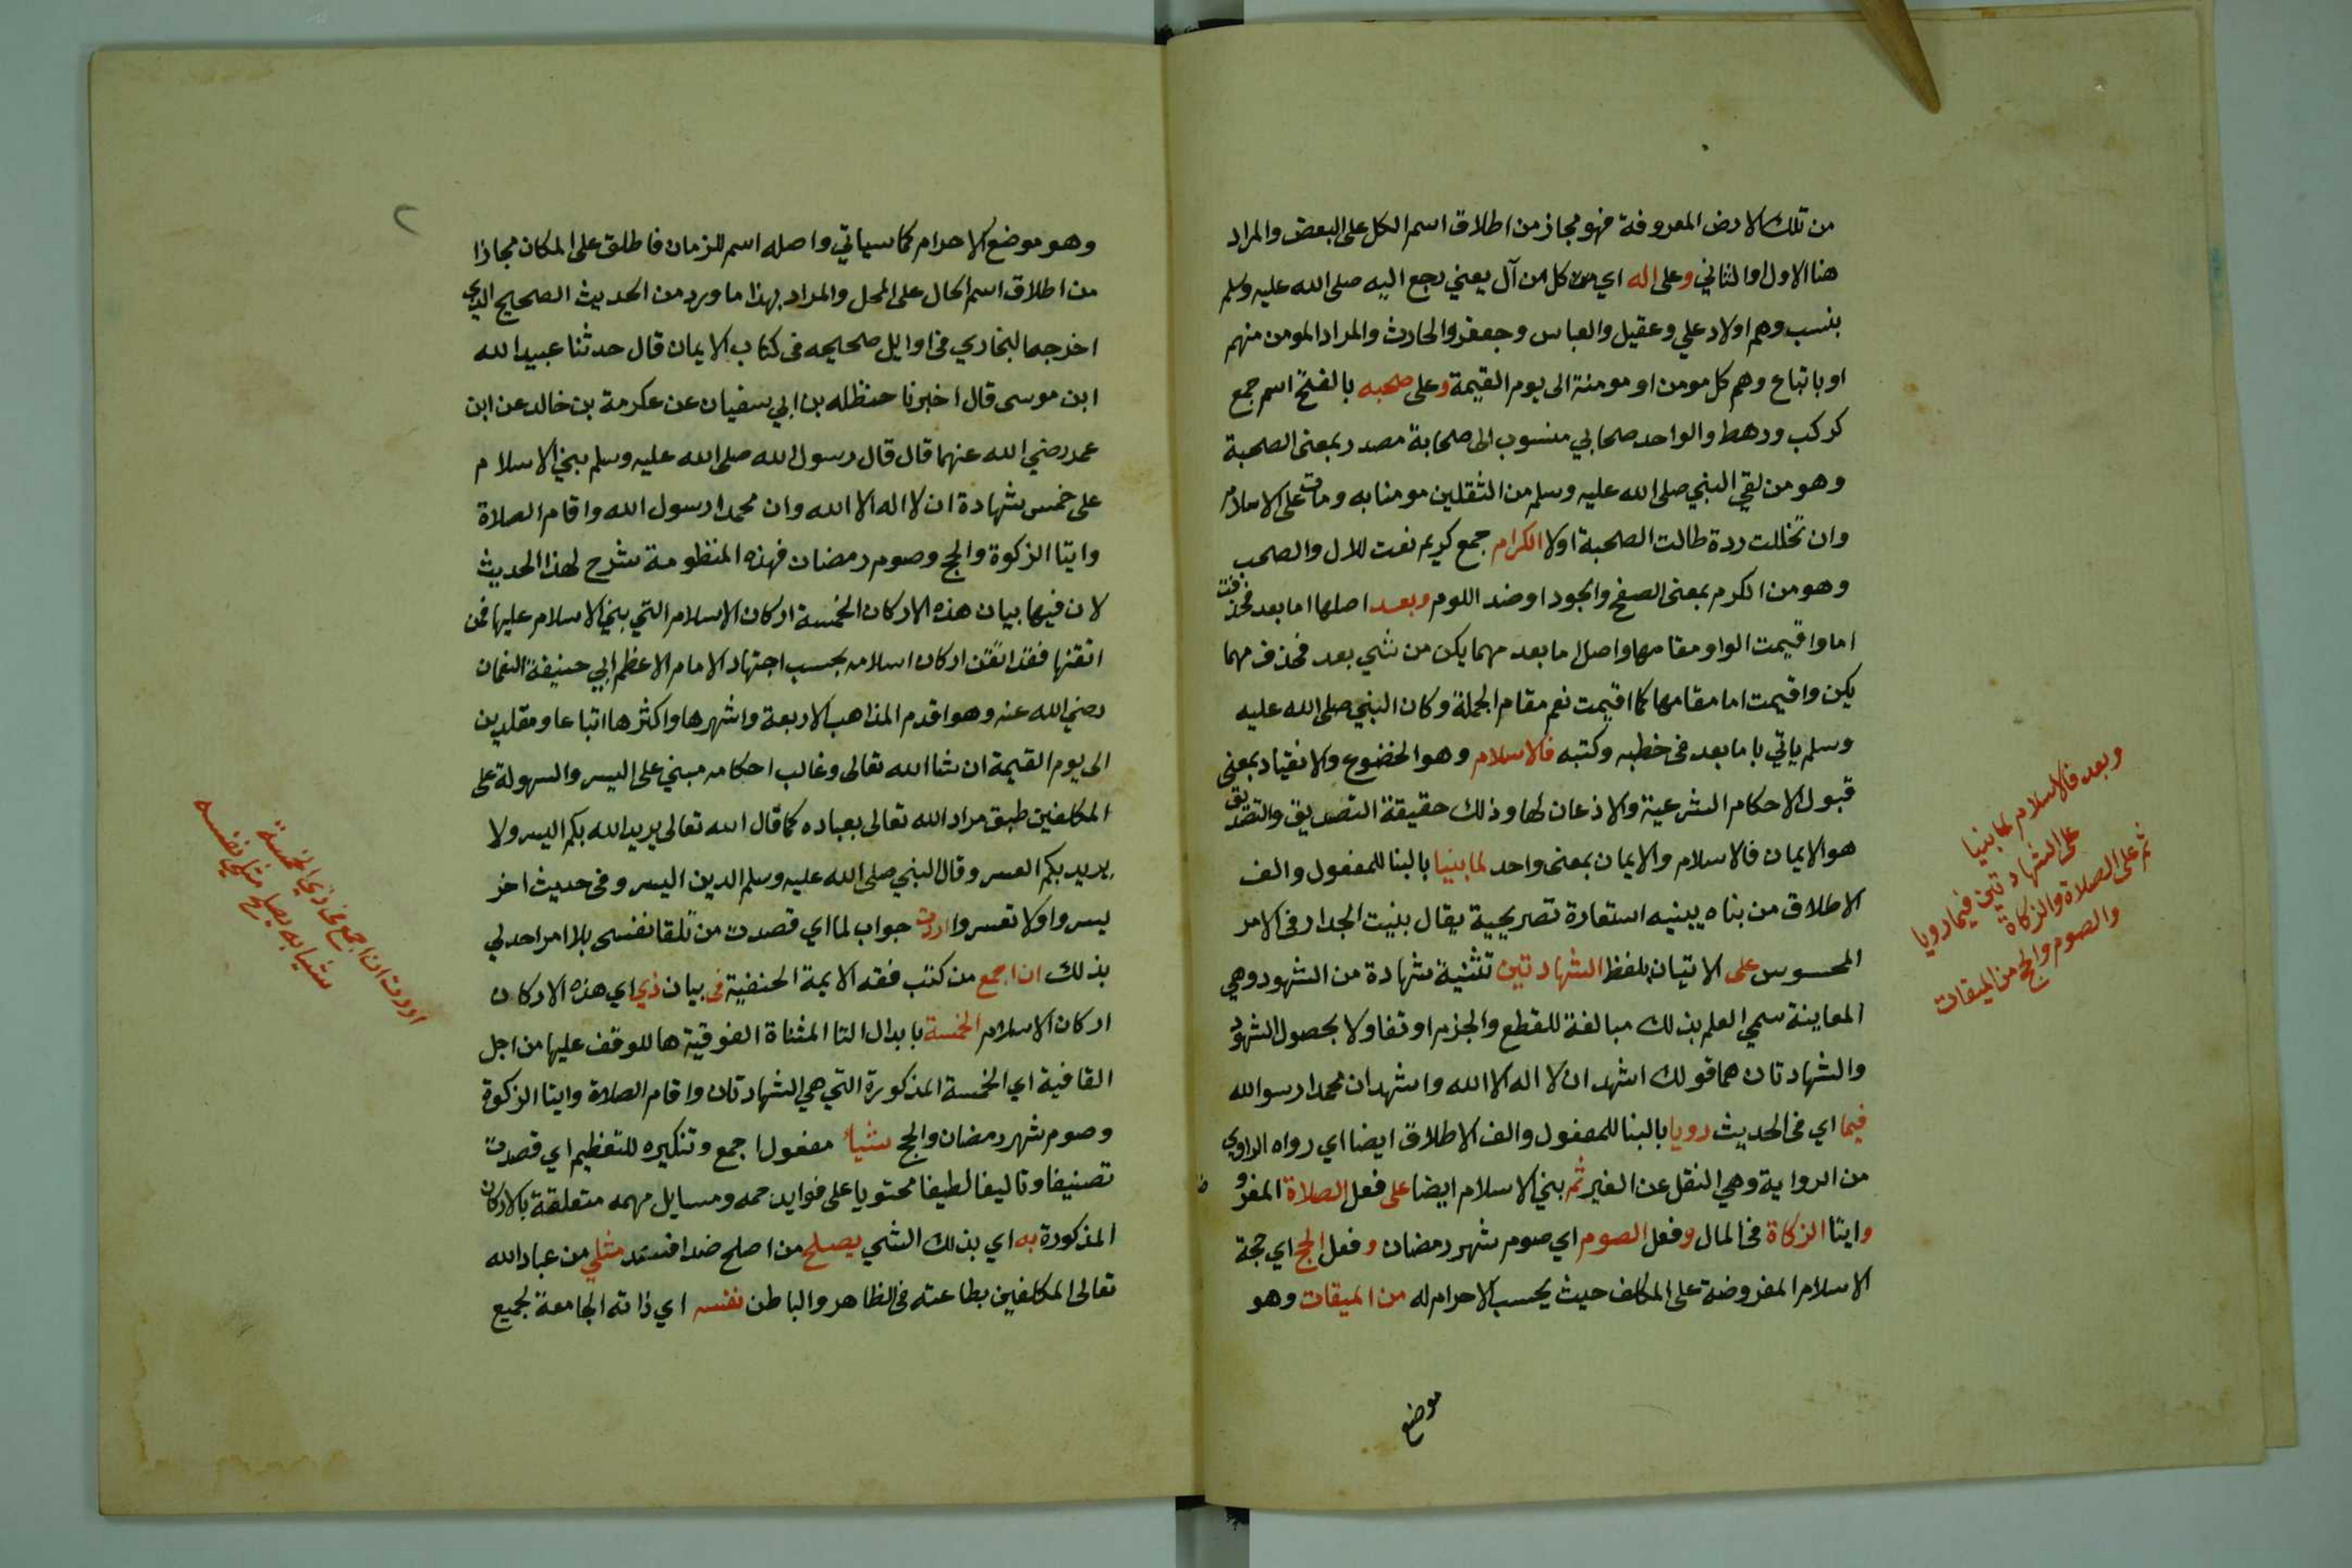 من تلك الارض المعروفة فهو مجاز من اطلاق اسم الكل على البعض والمراد
هنا الاول او الثاني وعلى اله اي من كل من آل يعني رجع اليه صلى الله عليه وسلم
بنسب وهم اولاد علي وعقيل والعباس وجعفر والحارث والمراد المومن منهم
او باتباع وهم كل مومن او مومنة الى يوم القيمة وعلى صحبه بالفتح اسم جمع
كركب ورهط والواحد صحابي منسوب الى صحابة مصدر بمعنى الصحبة
وهو من لقي النبي صلى الله عليه وسلم من الثقلين مومنا به ومات على الاسلام
وان تخللت ردة طالت الصحبة اولا الكرام جمع كريم نعت للال والصحب
وهو من الكرم بمعنى الصفح والجود او ضد اللوم وبعد اصلها اما بعد فحذفت
اما واقيمت الواو مقامها واصل اما بعد مهما يكن من شي بعد فحذف مهما
يكن واقيمت اما مقامها كما اقيمت نعم مقام الجملة وكان النبي صلى الله عليه
وسلم ياتي باما بعد في خطبه وكتبه فالاسلام وهو الخضوع والانقياد بمعنى
قبول الاحكام الشرعية والاذعان لها وذلك حقيقة التصديق والتصديق
هو الايمان فالاسلام والايمان بمعنى واحد لما بنيا بالبنا للمفعول والف
الاطلاق من بناه يبنيه استعارة تصريحية يقال بنيت الجدار في الامر
المحسوس على الاتيان بلفظ الشهادتين تثنية شهادة من الشهود وهي
المعاينة سمي العلم بذلك مبالغة للقطع والجزم او تفاولا بحصول الشهود
والشهادتان هما قولك اشهد ان لا اله الا الله واشهد ان محمدا رسوالله
فيما اي في الحديث رويا بالبنا للمفعول والف الاطلاق ايضا اي رواه الراوي
من الرواية وهي النقل عن الغير ثم بني الاسلام ايضا على فعل الصلاة المفرو
وايتا الزكاة في المال وفعل الصوم اي صوم شهر رمضان وفعل الحج اي حجة
الاسلام المفروضة على المكلف حيث يحسب الاحرام له من الميقات وهو
موضع
وبعد فالاسلام لما بنيا
على الشهادتين فيما رويا
ثم على الصلاة والزكاة
والصوم والحج من الميقات
٢
وهو موضع الاحرام كما سياتي واصله اسم للزمان فاطلق على المكان مجازا
من اطلاق اسم الحال على المحل والمراد بهذا ما ورد من الحديث الصحيح الذي
اخرجه البخاري في اوايل صحيحه في كتاب الايمان قال حدثنا عبيد الله
ابن موسى قال اخبرنا حنظله بن ابي سفيان عن عكرمة بن خالد عن ابن
عمر رضي الله عنهما قال قال رسول الله صلى الله عليه وسلم بني الاسلام
على خمس شهادة ان لا اله الا الله وان محمدا رسول الله واقام الصلاة
وايتا الزكوة والحج وصوم رمضان فهذه المنظومة شرح لهذا الحديث
لان فيها بيان هذه الاركان الخمسة اركان الاسلام التي بني الاسلام عليها فمن
اتقنها فقد اتقن اركان اسلامه بحسب اجتهاد الامام الاعظم ابي حنيفة النعمان
رضي الله عنه وهو اقدم المذاهب الاربعة واشهرها واكثرها اتباعا ومقلدين
الى يوم القيمة ان شا الله تعالى وغالب احكامه مبني على اليسر والسهولة على
المكلفين طبق مراد الله تعالى بعباده كما قال الله تعالى يريد الله بكم اليسر ولا
يريد بكم العسر وقال النبي صلى الله عليه وسلم الدين اليسر وفي حديث اخر
يسروا ولا تعسروا اردت جواب لما اي قصدت من تلقا نفسى بلا امر احد لي
بذلك ان اجمع من كتب فقه الايمة الحنفية في بيان ذي اي هذه الاركان
اركان الاسلام الخمسة بابدال التا المثناة الفوقية ها للوقف عليها من اجل
القافية اي الخمسة المذكورة التي هي الشهادتان واقام الصلاة وايتا الزكوة
وصوم شهر رمضان والحج شيأ مفعول اجمع وتنكيره للتعظيم اي قصدت
تصنيفا وتاليفا لطيفا محتويا على فوايد جمه ومسايل مهمه متعلقة بالاركان
المذكورة به اي بذلك الشي يصلح من اصلح ضد افسد مثلي من عباد الله
تعالى المكلفين بطاعته في الظاهر والباطن نفسه اي ذاته الجامعة لجميع
اردت ان اجمع في ذي الخمسة
شيأ به يصلح مثلي نفسه